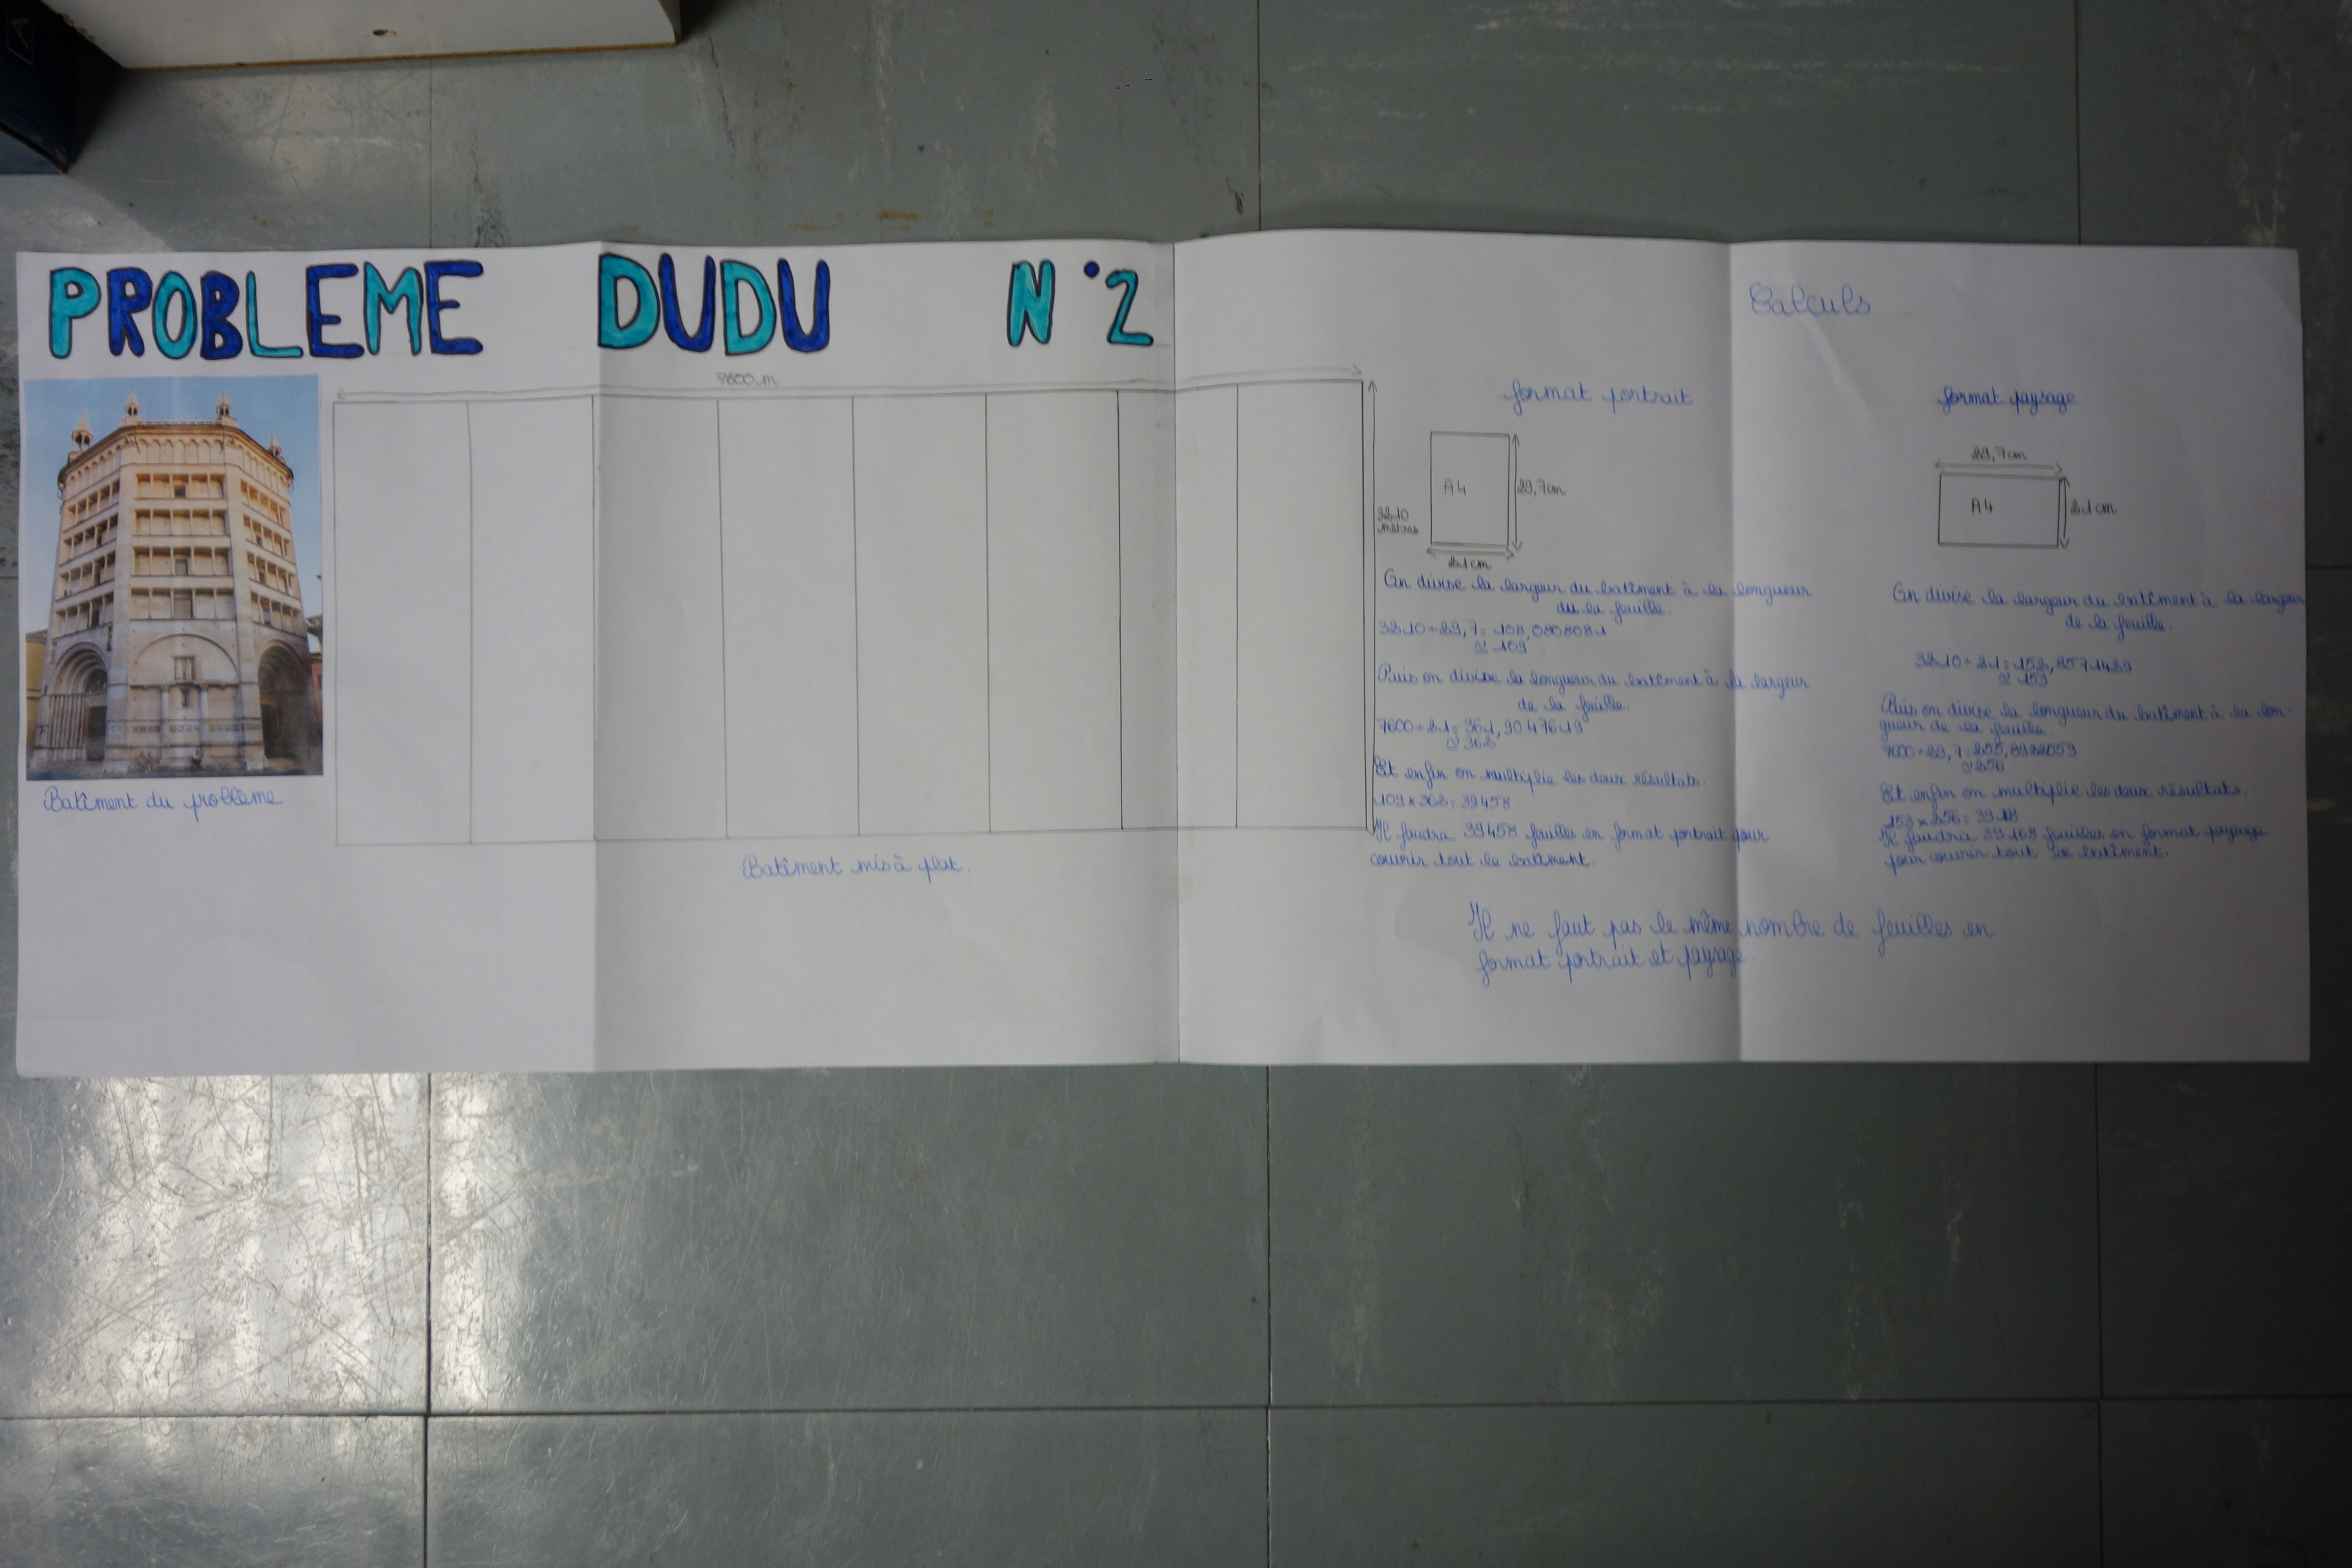 PROBLEME DUDU N°2
Calculs
7600 m
3210
mètres
Batîment du problème
Batîment mis à plat.
format portrait
A4
29,7cm
21cm
On divise la largeur du batîment à la longueur
du la feuille.
3210÷29,7= 108,0808081
≃ 109
Puis on divise la longueur du batîment à la largeur
de la feuille.
7600÷21= 361,9047619
≃ 362
Et enfin on multiplie les deux résultats.
109×362= 39458
Il faudra 39458 feuilles en format portrait pour
couvrir tout le batîment.
format paysage
29,7cm
A4
21cm
On divise la largeur du batîment à la largeur
de la feuille.
3210÷21= 152,8571429
≃ 153
Puis on divise la longueur du batîment à la lon-
gueur de la feuille.
7600÷29,7=255,8922559
≃256
Et enfin on multiplie les deux résultats.
153×256=
Il faudra 39168 feuilles en format paysage
pour couvrir tout le batîment.
Il ne faut pas le même nombre de feuilles en
format portrait et paysage.